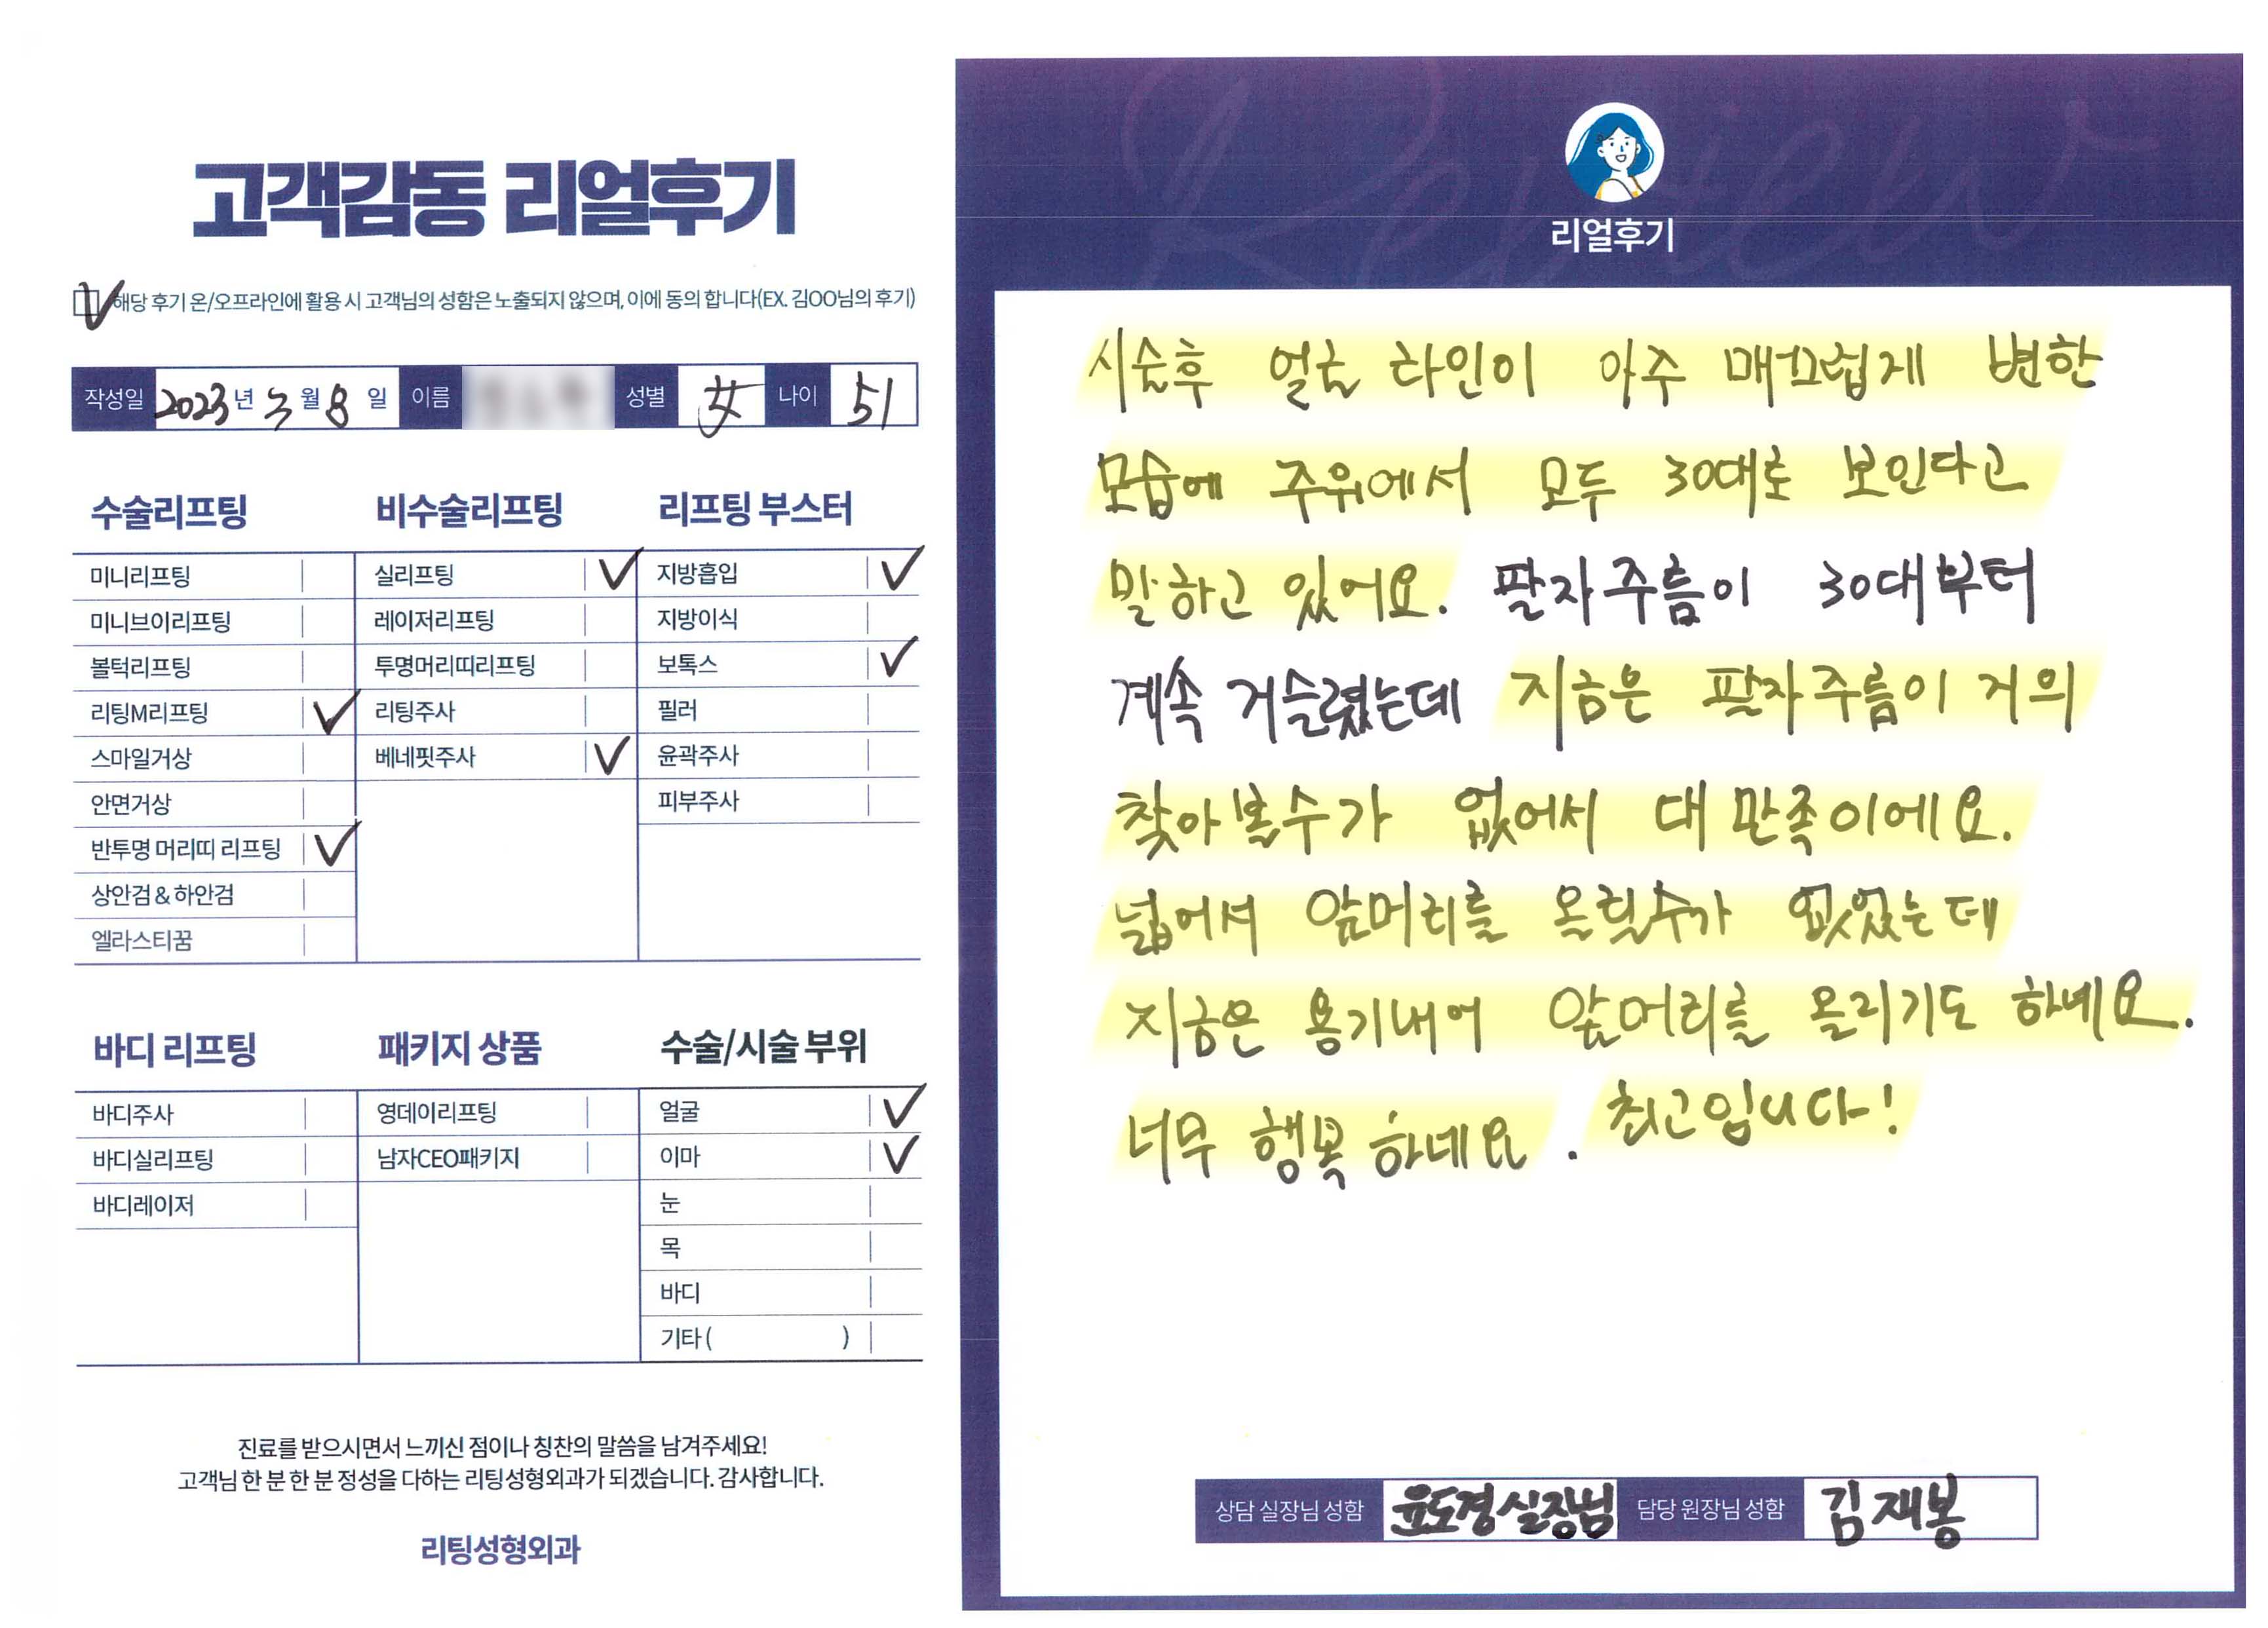 고객감동 리얼후기
해당 후기 온/오프라인에 활용 시 고객님의 성함은 노출되지 않으며, 이에 동의 합니다(EX. 김OO님의 후기)
작성일 2023년 3월 8일 이름 성별 女 나이 51
수술리프팅
미니리프팅
미니브이리프팅
볼턱리프팅
리팅M리프팅
스마일거상
안면거상
반투명 머리띠 리프팅
상안검 & 하안검
엘라스티꿈
비수술리프팅
실리프팅
레이저리프팅
투명머리띠리프팅
리팅주사
베네핏주사
리프팅 부스터
지방흡입
지방이식
보톡스
필러
윤곽주사
피부주사
바디 리프팅
바디주사
바디실리프팅
바디레이저
패키지 상품
영데이리프팅
남자CEO패키지
수술/시술 부위
얼굴
이마
눈
목
바디
기타 ( )
진료를 받으시면서 느끼신 점이나 칭찬의 말씀을 남겨주세요!
고객님 한 분 한 분 정성을 다하는 리팅성형외과가 되겠습니다. 감사합니다.
리팅성형외과
Review
리얼후기
시술후 얼굴 라인이 아주 매끄럽게 변한
모습에 주위에서 모두 30대로 보인다고
말하고 있어요. 팔자주름이 30대부터
계속 거슬렸는데 지금은 팔자주름이 거의
찾아볼수가 없어서 대 만족이에요.
넓어서 앞머리를 올릴수가 없었는데
지금은 용기내어 앞머리를 올리기도 하네요.
너무 행복하네요. 최고입니다!
상담 실장님 성함 윤도경실장님 담당 원장님 성함 김재봉